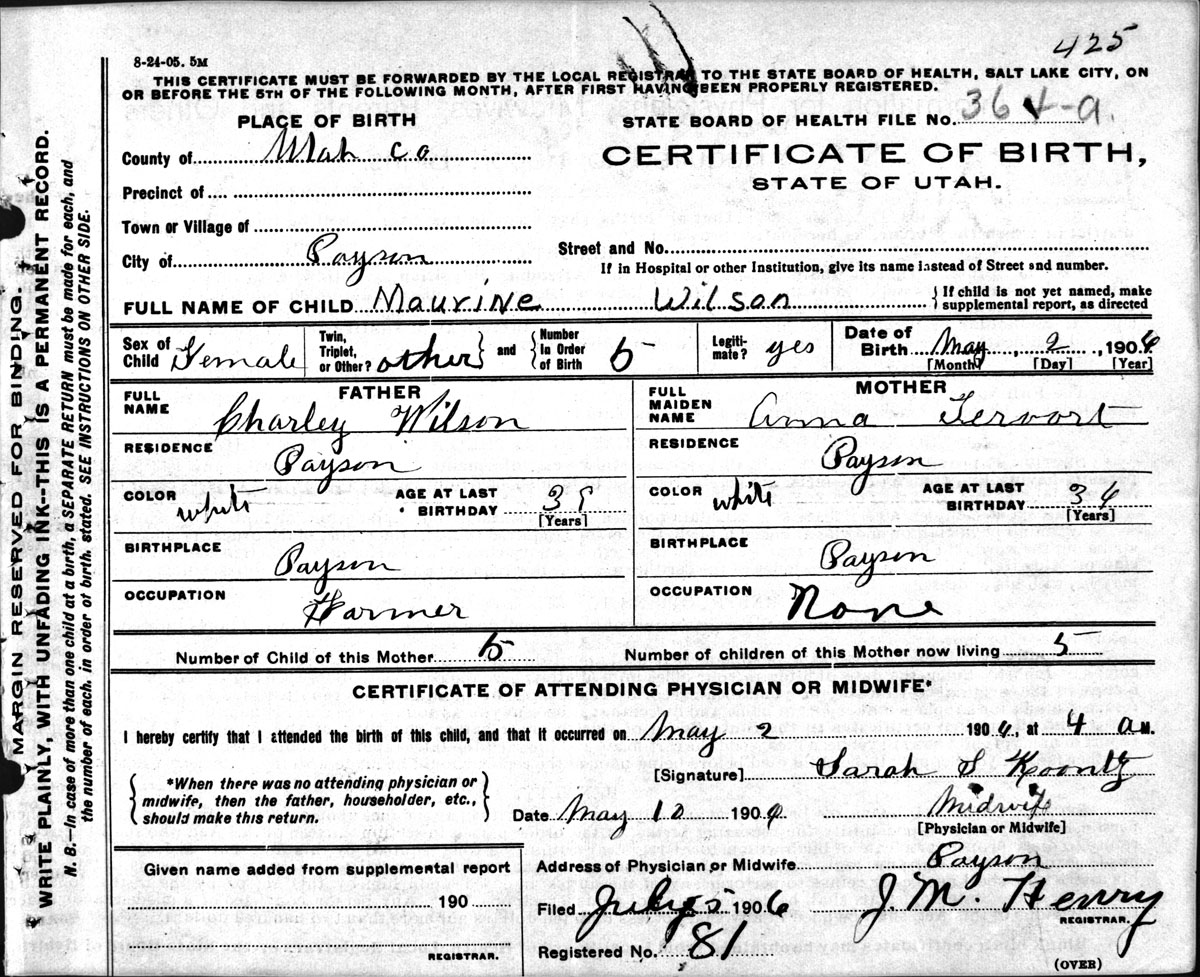 425
8-24-05. 5M
THIS CERTIFICATE MUST BE FORWARDED BY THE LOCAL REGISTRAR TO THE STATE BOARD OF HEALTH, SALT LAKE CITY, ON
OR BEFORE THE 5TH OF THE FOLLOWING MONTH, AFTER FIRST HAVING BEEN PROPERLY REGISTERED.
PLACE OF BIRTH
STATE BOARD OF HEALTH FILE No. 364-a
County of Utah Co
CERTIFICATE OF BIRTH,
STATE OF UTAH.
Precinct of
Town or Village of
City of Payson
Street and No.
If in Hospital or other Institution, give its name instead of Street and number.
FULL NAME OF CHILD Maurine Wilson
{If child is not yet named, make
supplemental report, as directed
Sex of Child Female
Twin, Triplet, or Other? other
and
Number In Order of Birth 5
Legiti-mate? yes
Date of Birth May, 2, 1906
[Month] [Day] [Year]
FATHER
FULL NAME Charley Wilson
RESIDENCE Payson
COLOR white AGE AT LAST BIRTHDAY 39
[Years]
BIRTHPLACE Payson
OCCUPATION Farmer
MOTHER
FULL MAIDEN NAME Anna Tervort
RESIDENCE Payson
COLOR white AGE AT LAST BIRTHDAY 36
[Years]
BIRTHPLACE Payson
OCCUPATION None
Number of Child of this Mother 5
Number of children of this Mother now living 5
CERTIFICATE OF ATTENDING PHYSICIAN OR MIDWIFE*
I hereby certify that I attended the birth of this child, and that it occurred on May 2 1906, at 4 a M.
*When there was no attending physician or
midwife, then the father, householder, etc.,
should make this return.
[Signature] Sarah S Koontz
Date May 10 1906 Midwife
[Physician or Midwife]
Address of Physician or Midwife Payson
Given name added from supplemental report
190
REGISTRAR.
Filed July 2 1906 J. M. Henry
REGISTRAR.
Registered No. 81
(OVER)
MARGIN RESERVED FOR BINDING.
WRITE PLAINLY, WITH UNFADING INK--THIS IS A PERMANENT RECORD.
N. B.--In case of more than one child at a birth, a SEPARATE RETURN must be made for each, and
the number of each, in order of birth, stated. SEE INSTRUCTIONS ON OTHER SIDE.